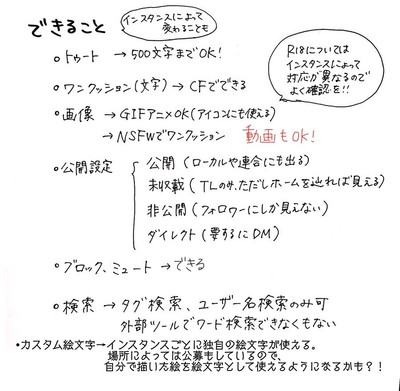 できること
インスタンスによって
変わることも
•トゥート→500文字までOK!
R18については
インスタンスによって
対応が異なるので
よく確認を!!
•ワンクッション(文字)→CFでできる
•画像→GIFアニメOK(アイコンにも使える)
→NSFWでワンクッション 動画もOK!
•公開設定
公開(ローカルや連合にも出る)
未収載(TLのみ、ただしホームを辿れば見える)
非公開(フォロワーにしか見えない)
ダイレクト(要するにDM)
•ブロック、ミュート→できる
•検索→タグ検索、ユーザー名検索のみ可
外部ツールでワード検索できなくもない
•カスタム絵文字→インスタンスごとに独自の絵文字が使える。
場所によっては公募もしているので、
自分で描いた絵を絵文字として使えるようになるかも?!